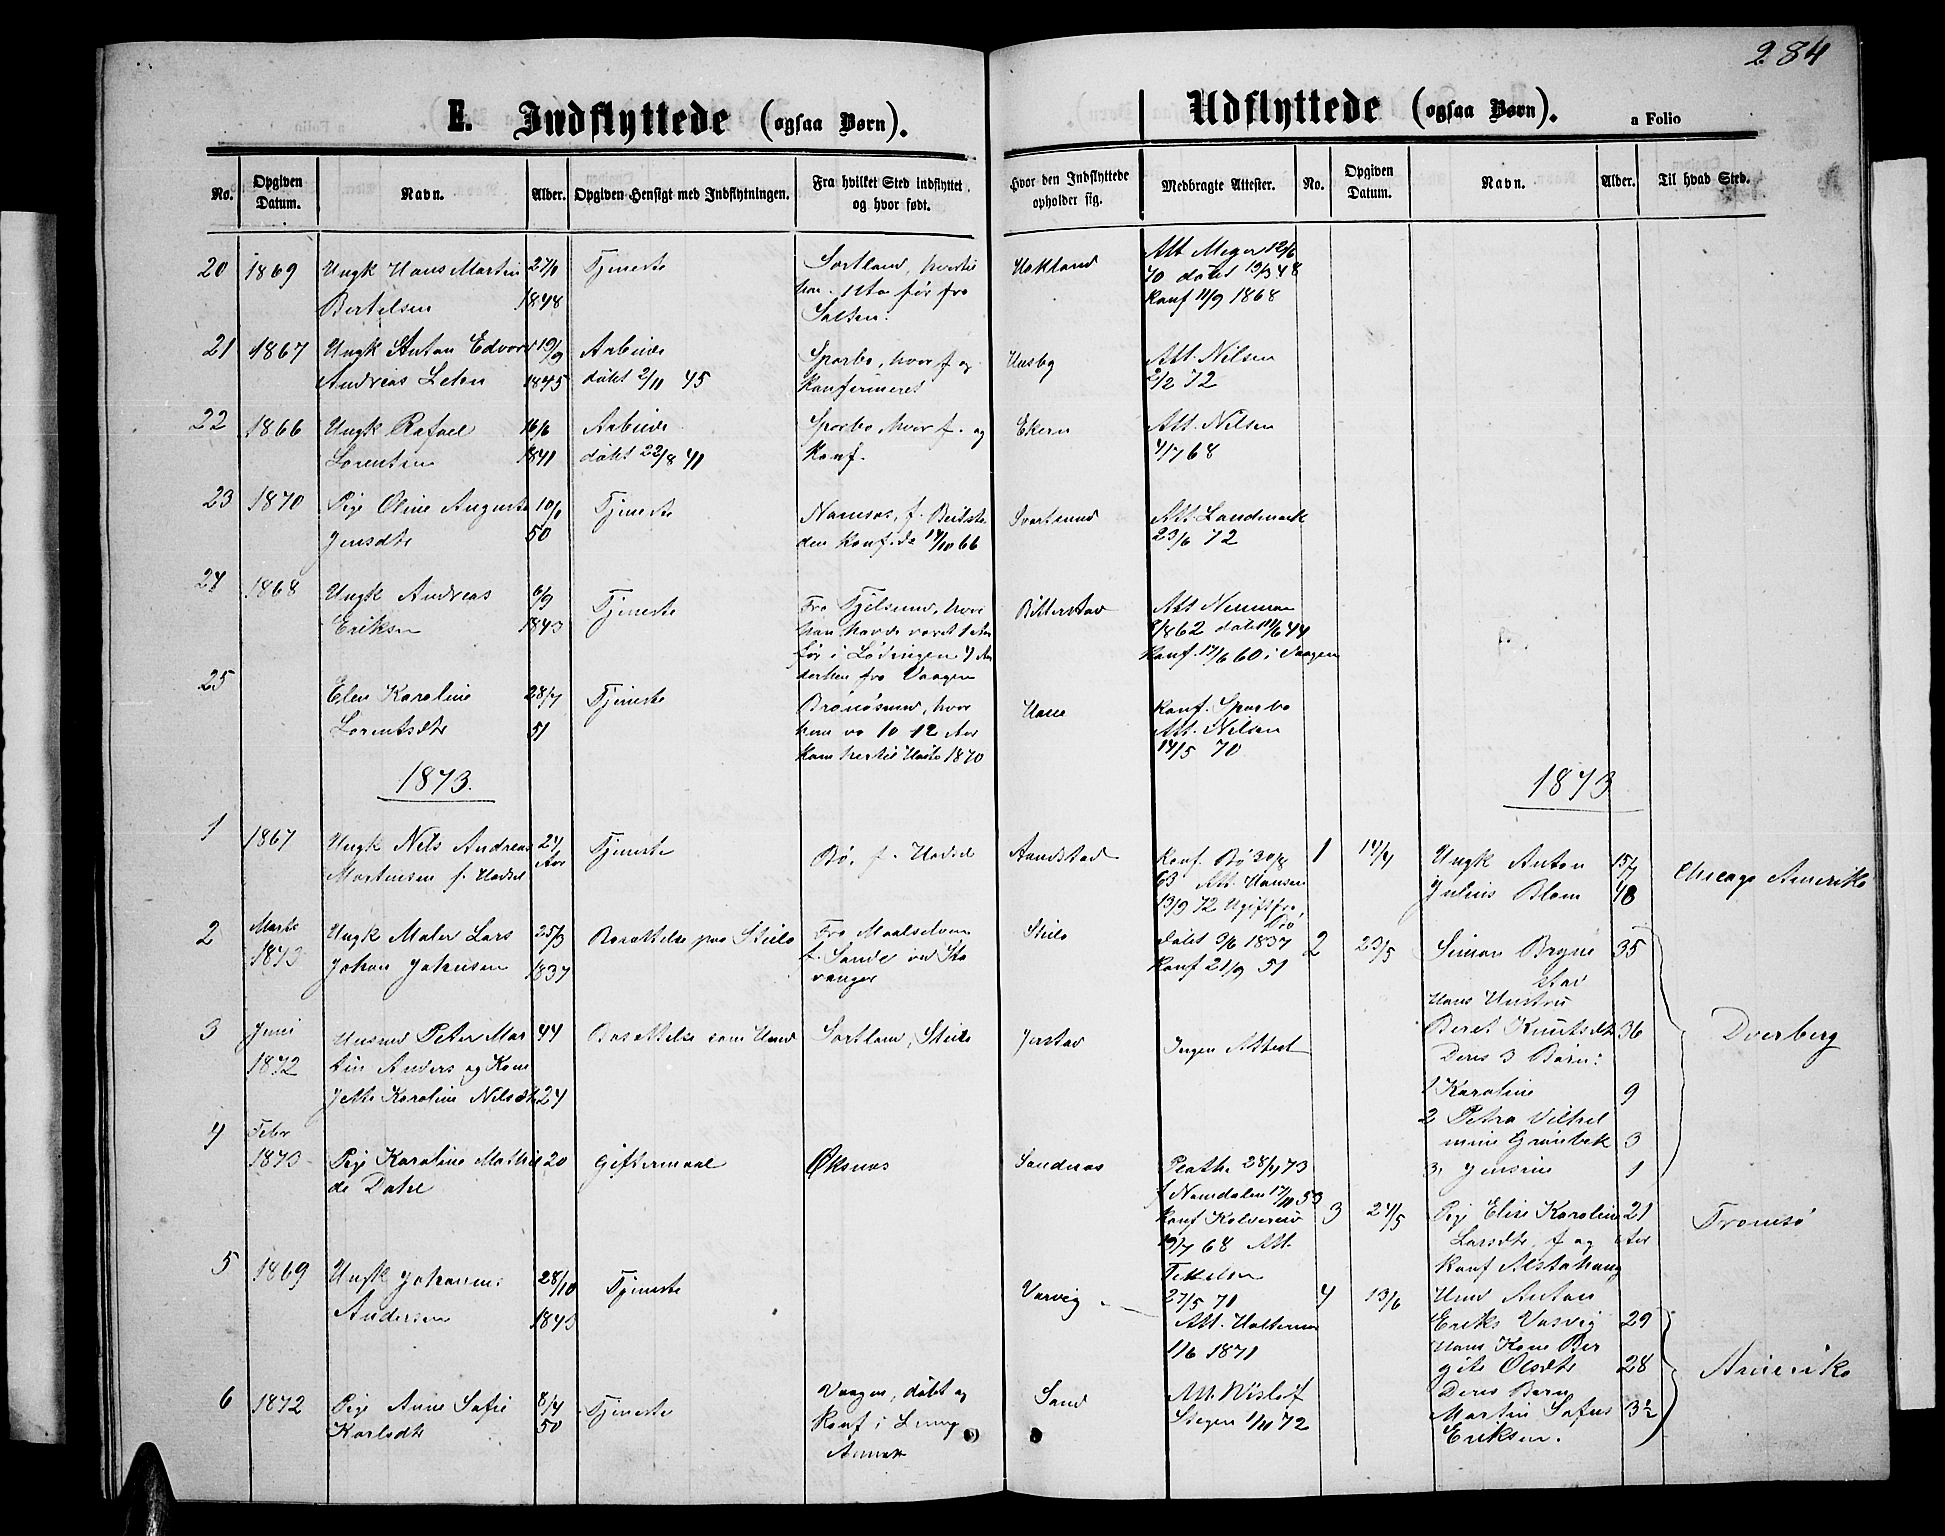 284
E. Indflyttede (ogsaa Børn).
No.
Opgiven Datum.
Navn.
Alder.
Opgiven Hensigt med Indflytningen.
Fra hvilket Sted indflyttet og hvor født.
Hvor den Indflyttede opholder sig.
Medbragte Attester.
20 1869 Ungk Hans Martin 27/ Tjeneste Sortland, hertil Hokland Att Meyer 12/6
Bertelsen 1848 før fra 70 døbt 19/3 48
Salten. Konf 11/9 1868
21 1867 Ungk Anton Edvard 19/9 Arbeide Sparbo, hvor f og Husby Att. Nilsen
Andreas Leten 1845 døbt 2/11 45 Konfirmeret 2/2 72
22 1866 Ungk Rafael 16/6 Arbeide Sparbo, hvor f. og Ekern Att. Nilsen
Lorentsen 1841 døbt 22/8 41 Konf. 4/7 68
23 1870 Pige Oline Auguste 10/ Tjeneste Namsos, f. Beitsta Svartsund Att. Landmark
Jensdtr 50 den Konf. do 14/10 66 23/6 72
24 1868 Ungk Andreas 6/9 Tjeneste Fra Fjelsund, hvor Bitterstad Att
Eriksen 1843 han havde været 1 Aar 8/8 62 døbt 11/6 44
før i Lødingen 4 Aar Konf. 17/6 60 i Vaagen
derhen fra Vaagen
25 Elen Karoline 28/7 Tjeneste Brønøsund, hvor Haae Konf. Sparbo
Lorentsdtr 51 hun va 10 12 Aar Att. Nilsen
kom hertil Høste 1870 14/5 70
1873.
1 1867 Ungk Nils Andreas 24 Tjeneste Bø, f. Hadsel Aandstad Konf. Bø 30/8
Mortensen f. Hadsel Aar 63 Att. Hansen
13/9 72 Ugift fra Bø
2 Marts Ungk Maler Lars 25/3 Bosættelse paa Steilo Fra Maalselven Steilo døbt 3/6 1837
1873 Johan Johnsen 1837 f. Sande ved Sta Konf 21/9 51
vanger
3 Juni Husmd Peter Mar 44 Bosættelse som Hmd Sortland, Steilo Jørstad Ingen Attest
1872 tin Anders og Kone
Jette Karoline Nilsdtr 24
4 Febr
1873 Pige Karoline Mathil 20 Giftermaal Øksnes Sandnes 28/4 73
de Dahl f. Namdalen 17/11 53
Konf Kolvereid
19/7 68 Att.
5 1869 Ungk Johannes 28/10 Tjeneste Vasvig 27/5 71
Andersen 1843 Att. Holterman
1/6 1871
6 1872 Pige Anne Sofie 8/4 Tjeneste Vaagen, døbt og Sand Att. Wisløf
Karlsdtr 50 Konf i Steigen 1/11 72
Annex
Udflyttede (ogsaa Børn).
a Folio
No.
Opgiven Datum.
Navn.
Alder.
Til hvad Sted.
1873
1 14/4 Ungk Anton 15/7 Chicago Amerika
Julius Blom 48
2 23/5 Simon Bryne 35
stad
Hans Hustru
Beret Knutsdtr 36 Dverberg
Deres 3 Børn:
1 Karoline 9
2 Petra Vilhel
mine Grønbek 3
3, Jensine 1
3 24/5 Pige Eline Karoline 21 Tromsø
Larsdtr, f og
Konf Alstahaug
4 13/6 Hmd Anton
Eriks. Vasvig 29
Hans Kone Ber
gite Olsdtr 28 Amerika
Deres Barn
Martin Sofus 3½
Eriksen.